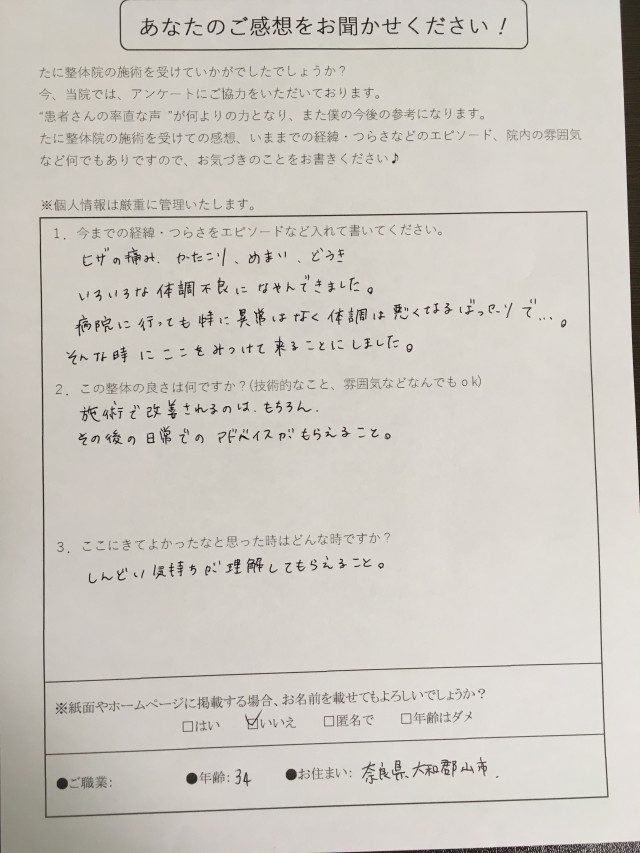 あなたのご感想をお聞かせください！
たに整体院の施術を受けていかがでしたでしょうか？
今、当院では、アンケートにご協力をいただいております。
“患者さんの率直な声 ”が何よりの力となり、また僕の今後の参考になります。
たに整体院の施術を受けての感想、いままでの経緯・つらさなどのエピソード、院内の雰囲気
など何でもありですので、お気づきのことをお書きください♪
※個人情報は厳重に管理いたします。
1．今までの経緯・つらさをエピソードなど入れて書いてください。
ヒザの痛み、かたこり、めまい、どうき
いろいろな体調不良になやんできました。
病院に行っても特に異常はなく体調は悪くなるばっかりで…。
そんな時にここをみつけて来ることにしました。
2．この整体の良さは何ですか？(技術的なこと、雰囲気などなんでもｏｋ)
施術で改善されるのは、もちろん、
その後の日常でのアドバイスがもらえること。
3．ここにきてよかったなと思った時はどんな時ですか？
しんどい気持ちが理解してもらえること。
※紙面やホームページに掲載する場合、お名前を載せてもよろしいでしょうか？
□はい ☑いいえ □匿名で □年齢はダメ
●ご職業： ●年齢：34 ●お住まい：奈良県大和郡山市．